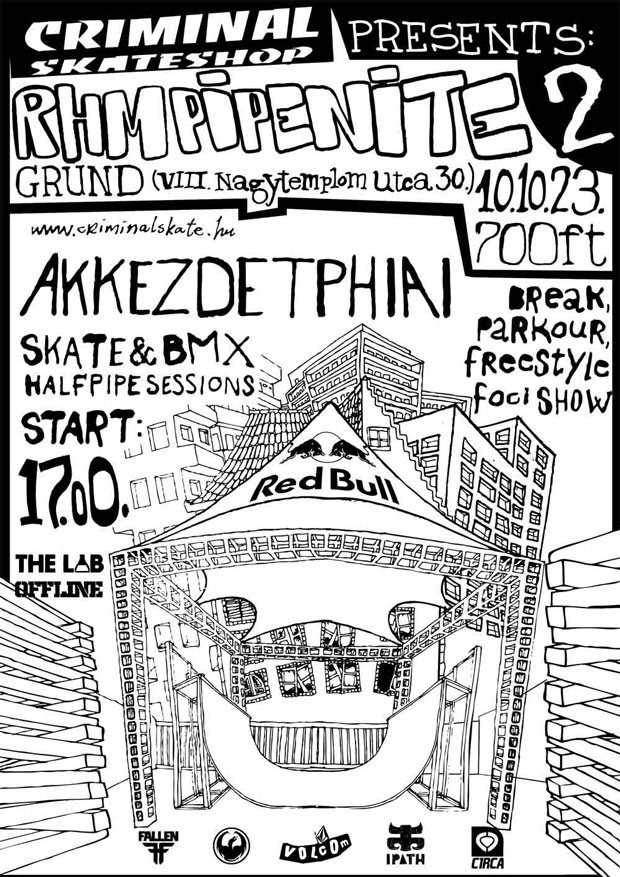 CRIMINAL
SKATESHOP
PRESENTS:
RHM PIPENITE 2
GRUND (VIII. Nagytemplom Utca 30.)
10.10.23.
700ft
www.criminalskate.hu
AKKEZDETPHIAI
BREAK,
PARKOUR,
FREESTYLE
FOCI SHOW
SKATE & BMX
HALFPIPE SESSIONS
START:
17.00.
Red Bull
THE LAB
OFFLINE
FALLEN
VOLCOM
IPATH
C1RCA